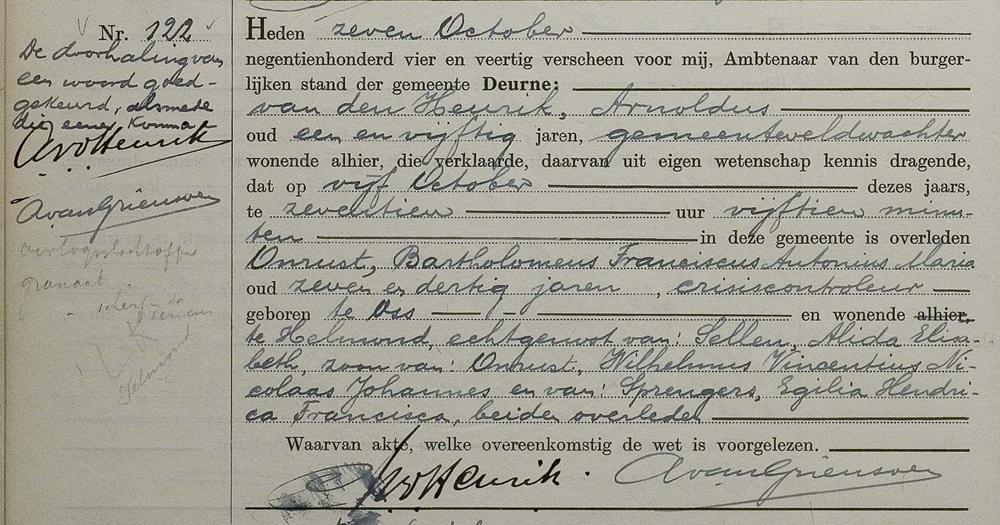 Nr. 122
De doorhaling van
een woord goed-
gekeurd, alsmede
die eener komma
AvdHenrik
AvanGriensven
oorlogsslachtoffer
granaat
Helmond
Heden zeven October
negentienhonderd vier en veertig verscheen voor mij, Ambtenaar van den burger-
lijken stand der gemeente Deurne:
van den Heurik, Arnoldus
oud een en vijftig jaren, gemeenteveldwachter
wonende alhier, die verklaarde, daarvan uit eigen wetenschap kennis dragende,
dat op vijf October dezes jaars,
te zeventien uur vijftien minu-
ten in deze gemeente is overleden
Onrust, Bartholomeus Franciscus Antonius Maria
oud zeven en dertig jaren, crisiscontroleur
geboren te Oss en wonende alhier,
te Helmond, echtgenoot van: Sellen, Alida Elisa-
beth, zoon van: Onrust, Wilhelmus Vincentius Ni-
colaas Johannes en van: Sprengers, Egilia Hendri-
ca Francisca, beiden overleden
Waarvan akte, welke overeenkomstig de wet is voorgelezen.
AvdHeurik. AvanGriensven